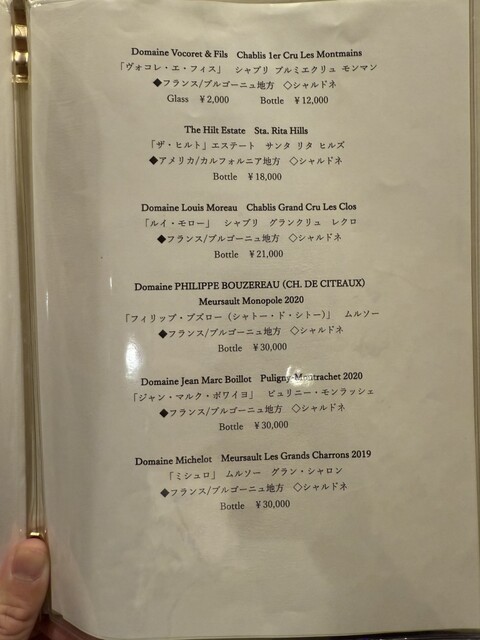 Domaine Vocoret & Fils Chablis 1er Cru Les Montmains
「ヴォコレ・エ・フィス」 シャブリ プルミエクリュ モンマン
◆フランス/ブルゴーニュ地方 ◇シャルドネ
Glass ¥2,000 Bottle ¥12,000
The Hilt Estate Sta. Rita Hills
「ザ・ヒルト」エステート サンタ リタ ヒルズ
◆アメリカ/カルフォルニア地方 ◇シャルドネ
Bottle ¥18,000
Domaine Louis Moreau Chablis Grand Cru Les Clos
「ルイ・モロー」 シャブリ グランクリュ レクロ
◆フランス/ブルゴーニュ地方 ◇シャルドネ
Bottle ¥21,000
Domaine PHILIPPE BOUZEREAU (CH. DE CITEAUX)
Meursault Monopole 2020
「フィリップ・ブズロー（シャトー・ド・シトー）」 ムルソー
◆フランス/ブルゴーニュ地方 ◇シャルドネ
Bottle ¥30,000
Domaine Jean Marc Boillot Puligny-Montrachet 2020
「ジャン・マルク・ボワイヨ」 ピュリニー・モンラッシェ
◆フランス/ブルゴーニュ地方 ◇シャルドネ
Bottle ¥30,000
Domaine Michelot Meursault Les Grands Charrons 2019
「ミシュロ」 ムルソー グラン・シャロン
◆フランス/ブルゴーニュ地方 ◇シャルドネ
Bottle ¥30,000